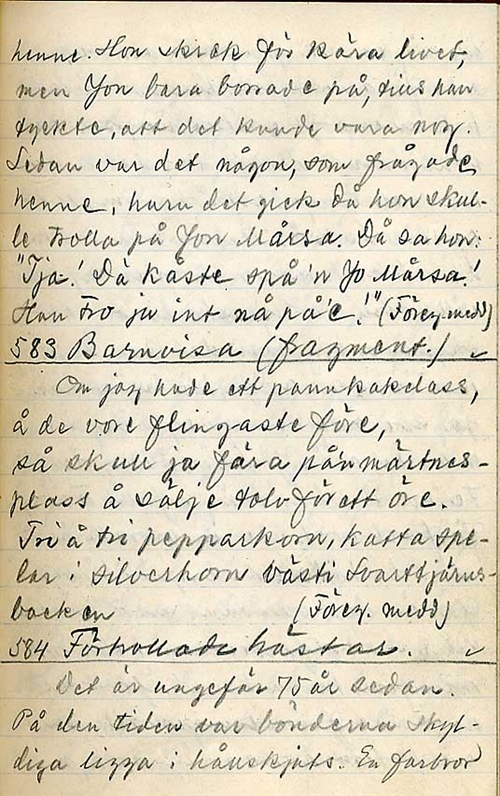 henne. Hon skrek för kära livet,
men Jon bara borrade på, tills han
tyckte, att det kunde vara nog.
Sedan var det någon, som frågade
henne, huru det gick då hon skul-
le trolla på Jon Mårsa. Då sa hon:
"Tja! Dä kåste spå 'n Jo Mårsa!
Han tro ju int nå på'e!" (Föreg. medd)
583 Barnvisa (fragment.)
Om jag hade ett pannkakelass,
å de vore flingaste före,
så skull ja fära på'n märtnes-
plass å sälje tolv för ett öre.
Tri å tri pepparkorn, katta spe-
lar i silverhorn västi Svarttjärns-
backen (Föreg. medd)
584 Förtrollade hästar.
Det är ungefär 75 år sedan.
På den tiden var bönderna skyl-
diga ligga i hållskjuts. En farbror